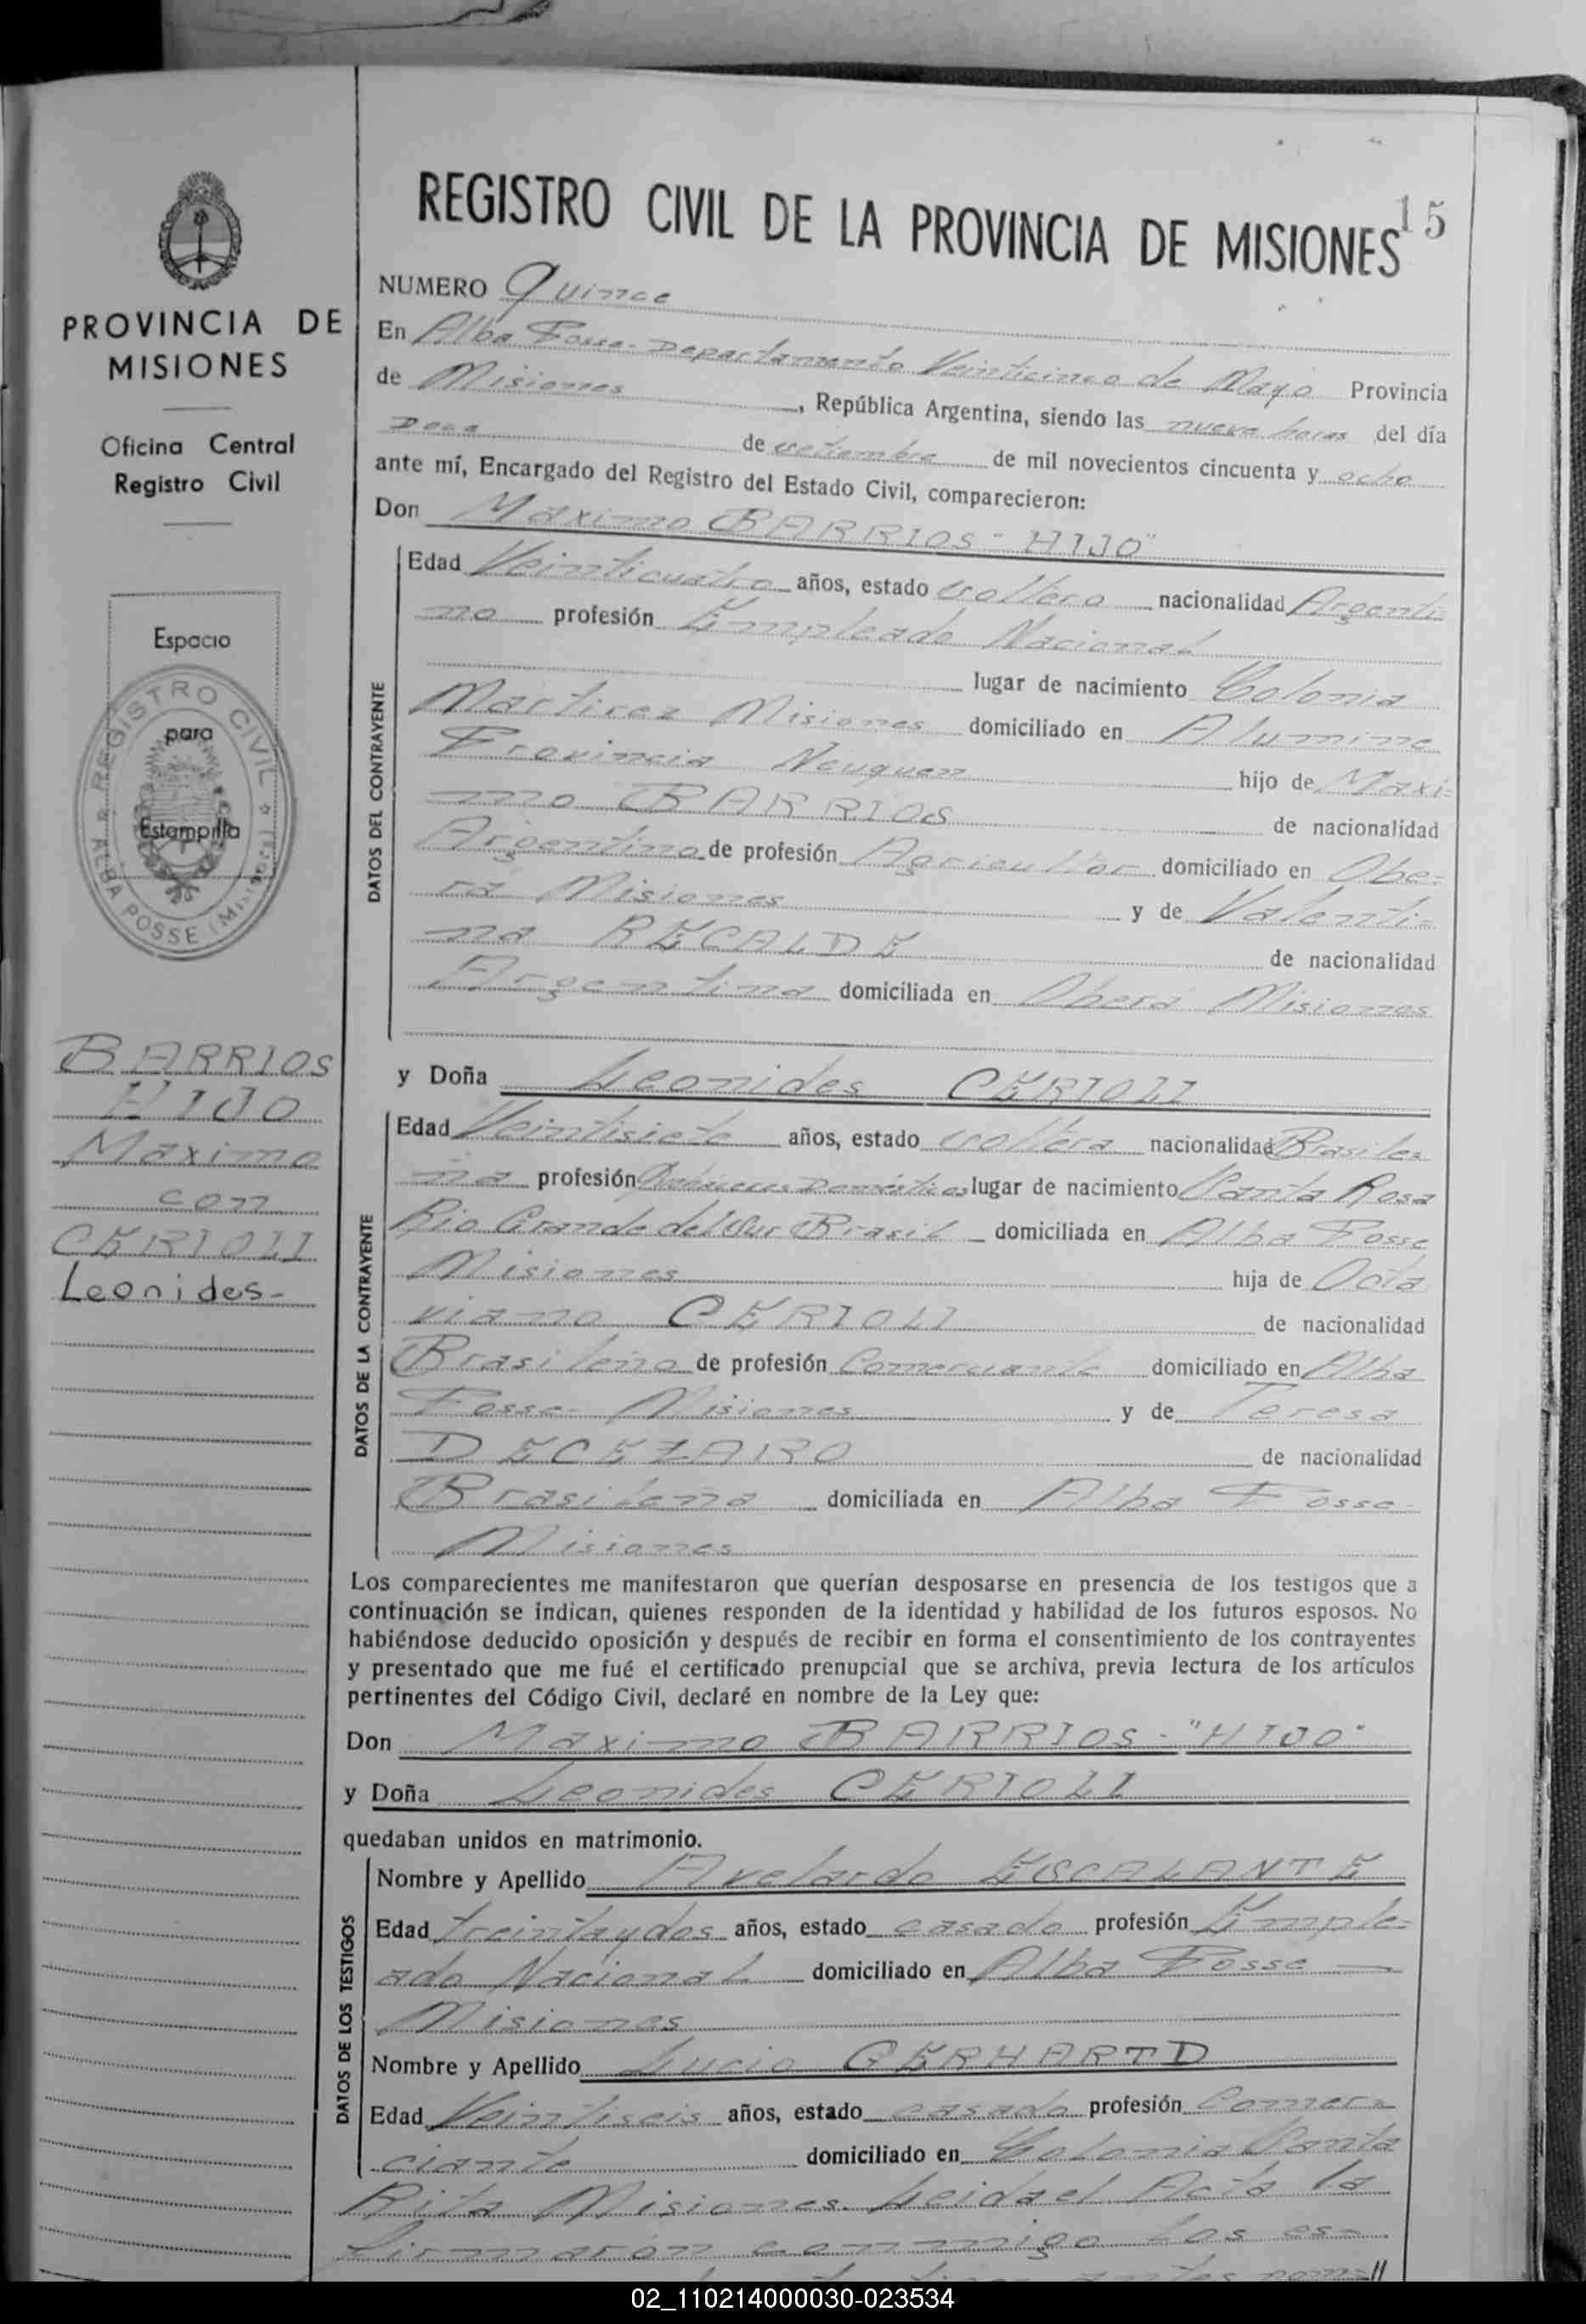 REGISTRO CIVIL DE LA PROVINCIA DE MISIONES 15
PROVINCIA DE
MISIONES
Oficina Central
Registro Civil
Espacio
para
Estampilla
REGISTRO CIVIL
ALBA POSSE (Misiones)
BARRIOS
HIJO
Maximo
con
CERIOLI
Leonides-
NUMERO Quince
En Alba Posse- Departamento Veinticinco de Mayo Provincia
de Misiones, República Argentina, siendo las nueve horas del día
Doce de setiembre de mil novecientos cincuenta y ocho
ante mí, Encargado del Registro del Estado Civil, comparecieron:
Don Maximo BARRIOS- "HIJO"
DATOS DEL CONTRAYENTE
Edad Veinticuatro años, estado soltero nacionalidad Argenti
no profesión Empleado Nacional
lugar de nacimiento Colonia
Martirez Misiones domiciliado en Alumine
Provincia Neuquen hijo de Maxi-
mo BARRIOS de nacionalidad
Argentina de profesión Agricultor domiciliado en Obe-
rá Misiones y de Valenti-
na RECALDE de nacionalidad
Argentina domiciliada en Oberá Misiones
y Doña Leonides CERIOLI
DATOS DE LA CONTRAYENTE
Edad Veintisiete años, estado soltera nacionalidad Brasile
ña profesión Quehaceres Domésticos lugar de nacimiento Santa Rosa
Rio Grande del Sur Brasil domiciliada en Alba Posse
Misiones hija de Octa
viano CERIOLI de nacionalidad
Brasileño de profesión Comerciante domiciliado en Alba
Posse- Misiones y de Teresa
DECEZARO de nacionalidad
Brasileña domiciliada en Alba Posse
Misiones
Los comparecientes me manifestaron que querían desposarse en presencia de los testigos que a
continuación se indican, quienes responden de la identidad y habilidad de los futuros esposos. No
habiéndose deducido oposición y después de recibir en forma el consentimiento de los contrayentes
y presentado que me fué el certificado prenupcial que se archiva, previa lectura de los artículos
pertinentes del Código Civil, declaré en nombre de la Ley que:
Don Maximo BARRIOS- "HIJO"
y Doña Leonides CERIOLI
quedaban unidos en matrimonio.
DATOS DE LOS TESTIGOS
Nombre y Apellido Avelardo ESCALANTE
Edad treinta y dos años, estado casado profesión Emple-
ado Nacional domiciliado en Alba Posse
Misiones
Nombre y Apellido Lucio GERHARTD
Edad Veintiseis años, estado casado profesión Comer-
ciante domiciliado en Colonia Santa
Rita Misiones. Leida el Acta la
firmaron conmigo los es-
02_110214000030-023534